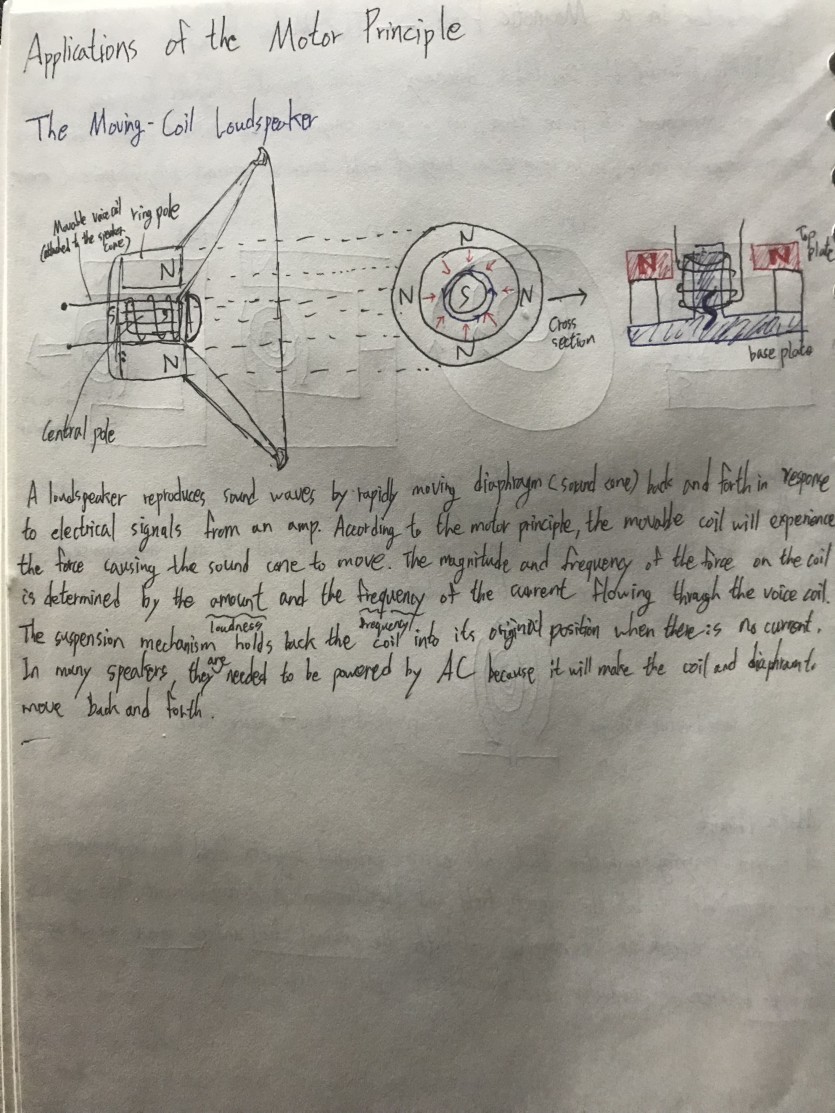 Applications of the Motor Principle
The Moving-Coil Loudspeaker
Movable voice coil
(attached to the speaker
cone)
ring pole
N
S
S
N
Central pole
N
N
S
N
N
Cross
section
N
S
N
Top
plate
base plate
A loudspeaker reproduces sound waves by rapidly moving diaphragm (sound cone) back and forth in response
to electrical signals from an amp. According to the motor principle, the movable coil will experience
the force causing the sound cone to move. The magnitude and frequency of the force on the coil
is determined by the amount and the frequency of the current flowing through the voice coil.
loudness frequency
The suspension mechanism holds back the coil into its original position when there is no current.
In many speakers, they are needed to be powered by AC because it will make the coil and diaphram to
move back and forth.